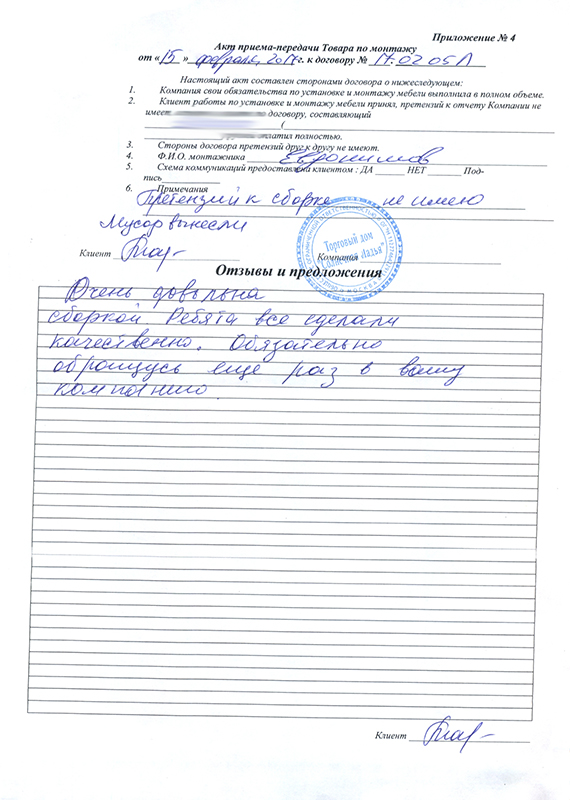 Приложение № 4
Акт приема-передачи Товара по монтажу
от «15» февраля 2017г. к договору № 17.02 05Л
Настоящий акт составлен сторонами договора о нижеследующем:
1. Компания свои обязательства по установке и монтажу мебели выполнила в полном объеме.
2. Клиент работы по установке и монтажу мебели принял, претензий к отчету Компании не
имеет договору, составляющий
(
платил полностью.
3. Стороны договора претензий друг к другу не имеют.
4. Ф.И.О. монтажника
5. Схема коммуникаций предоставлена клиентом : ДА ______ НЕТ ______ Под-
пись
6. Примечания
Претензий к сборке не имею
Мусор вынесли
Торговый дом
МОСКВА
Клиент Компания
Отзывы и предложения
Очень довольна
сборкой Ребята все сделали
качественно. Обязательно
обращусь еще раз в вашу
компанию
Клиент